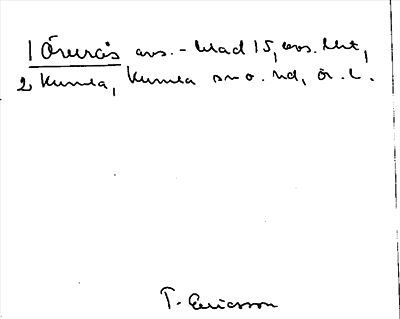 1 Öreräs avs. - blad 15, avs. lht,
2 Kumla, Kumla sn o. hd, ör. l.
T. Ericsson